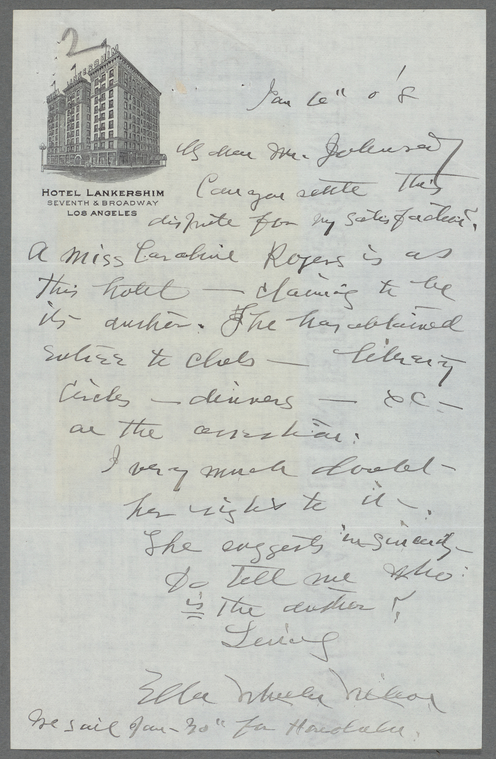 2
HOTEL LANKERSHIM
SEVENTH & BROADWAY
LOS ANGELES
My dear Mr. Johnson
Can you settle this
dispute for my satisfaction?
A Miss Caroline Rogers is at
this hotel — claiming to be
its author. She has obtained
entree to clubs — literary
circles — dinners — &c —
on the assertion.
I very much doubt
her rights to it —.
She suggests insincerity
Do tell me who
is the author?
Ella Wheeler Wilcox
We sail Jan- 30" for Honolulu.